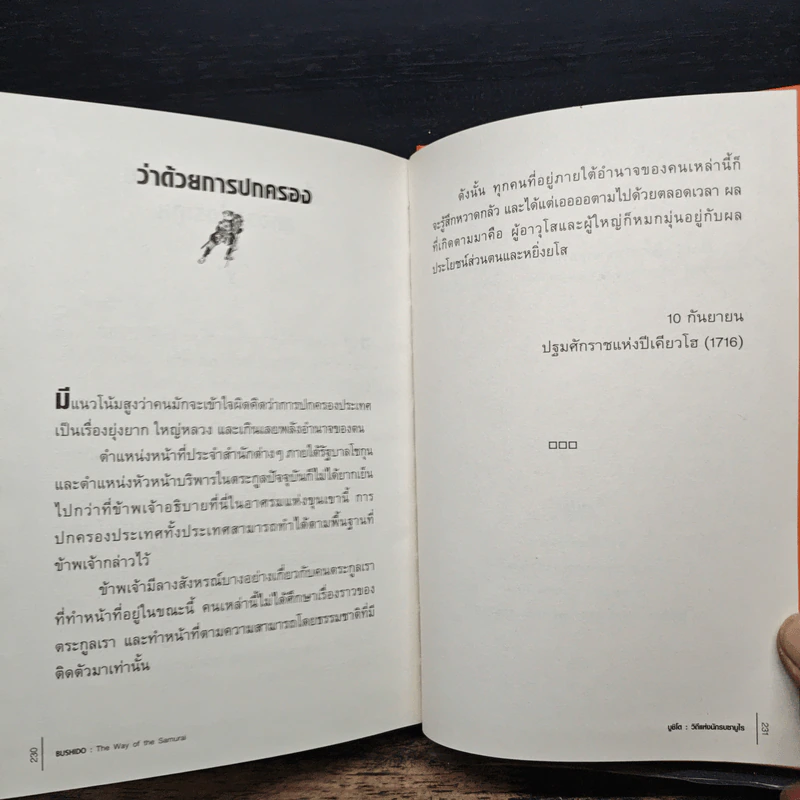 ว่าด้วยการปกครอง
มีแนวโน้มสูงว่าคนมักจะเข้าใจผิดคิดว่าการปกครองประเทศ
เป็นเรื่องยุ่งยาก ใหญ่หลวง และเกินเลยพลังอำนาจของตน
ตำแหน่งหน้าที่ประจำสำนักต่างๆ ภายใต้รัฐบาลโชกุน
และตำแหน่งหัวหน้าบริหารในตระกูลปัจจุบันก็ไม่ได้ยากเย็น
ไปกว่าที่ข้าพเจ้าอธิบายที่นี่ในอาศรมแห่งขุนเขานี้ การ
ปกครองประเทศทั้งประเทศสามารถทำได้ตามพื้นฐานที่
ข้าพเจ้ากล่าวไว้
ข้าพเจ้ามีลางสังหรณ์บางอย่างเกี่ยวกับคนตระกูลเรา
ที่ทำหน้าที่อยู่ในขณะนี้ คนเหล่านี้ไม่ได้ศึกษาเรื่องราวของ
ตระกูลเรา และทำหน้าที่ตามความสามารถโดยธรรมชาติที่มี
ติดตัวมาเท่านั้น
230
BUSHIDO : The Way of the Samurai
ดังนั้น ทุกคนที่อยู่ภายใต้อำนาจของคนเหล่านี้ก็
จะรู้สึกหวาดกลัว และได้แต่เออออตามไปด้วยตลอดเวลา ผล
ที่เกิดตามมาคือ ผู้อาวุโสและผู้ใหญ่ก็หมกมุ่นอยู่กับผล
ประโยชน์ส่วนตนและหยิ่งยโส
10 กันยายน
ปฐมศักราชแห่งปีเคียวโฮ (1716)
บูชิโด : วิถีแห่งนักรบซามูไร
231